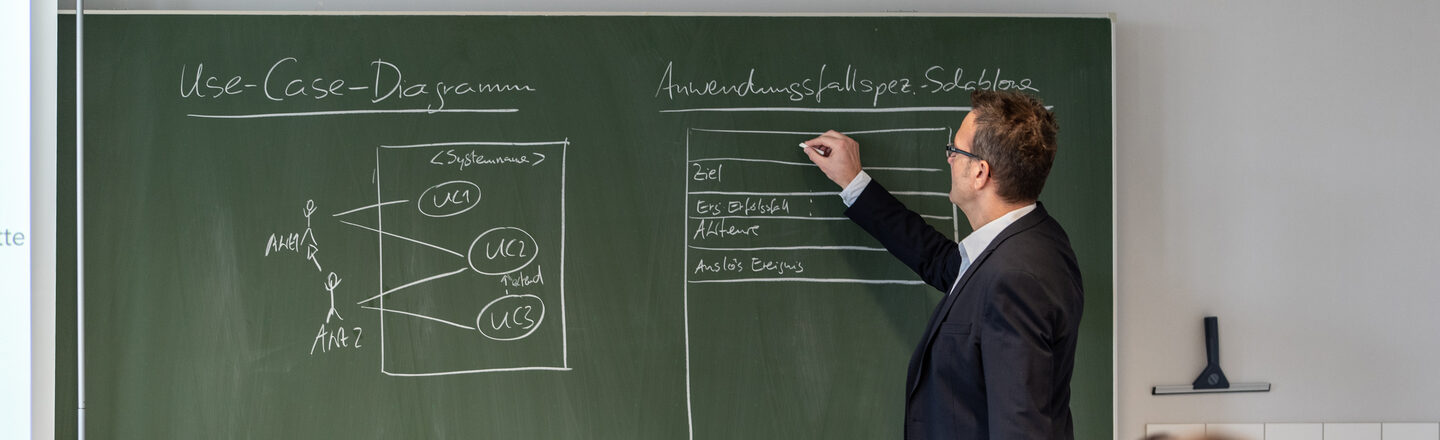 Use-Case-Diagramm
<Systemname>
UC1
AKt1
UC2
extend
UC3
AKt2
Anwendungsfallspez.-Schablone
Ziel
Erg. Erfolgsfall
Akteure
Auslös Ereignis
tte